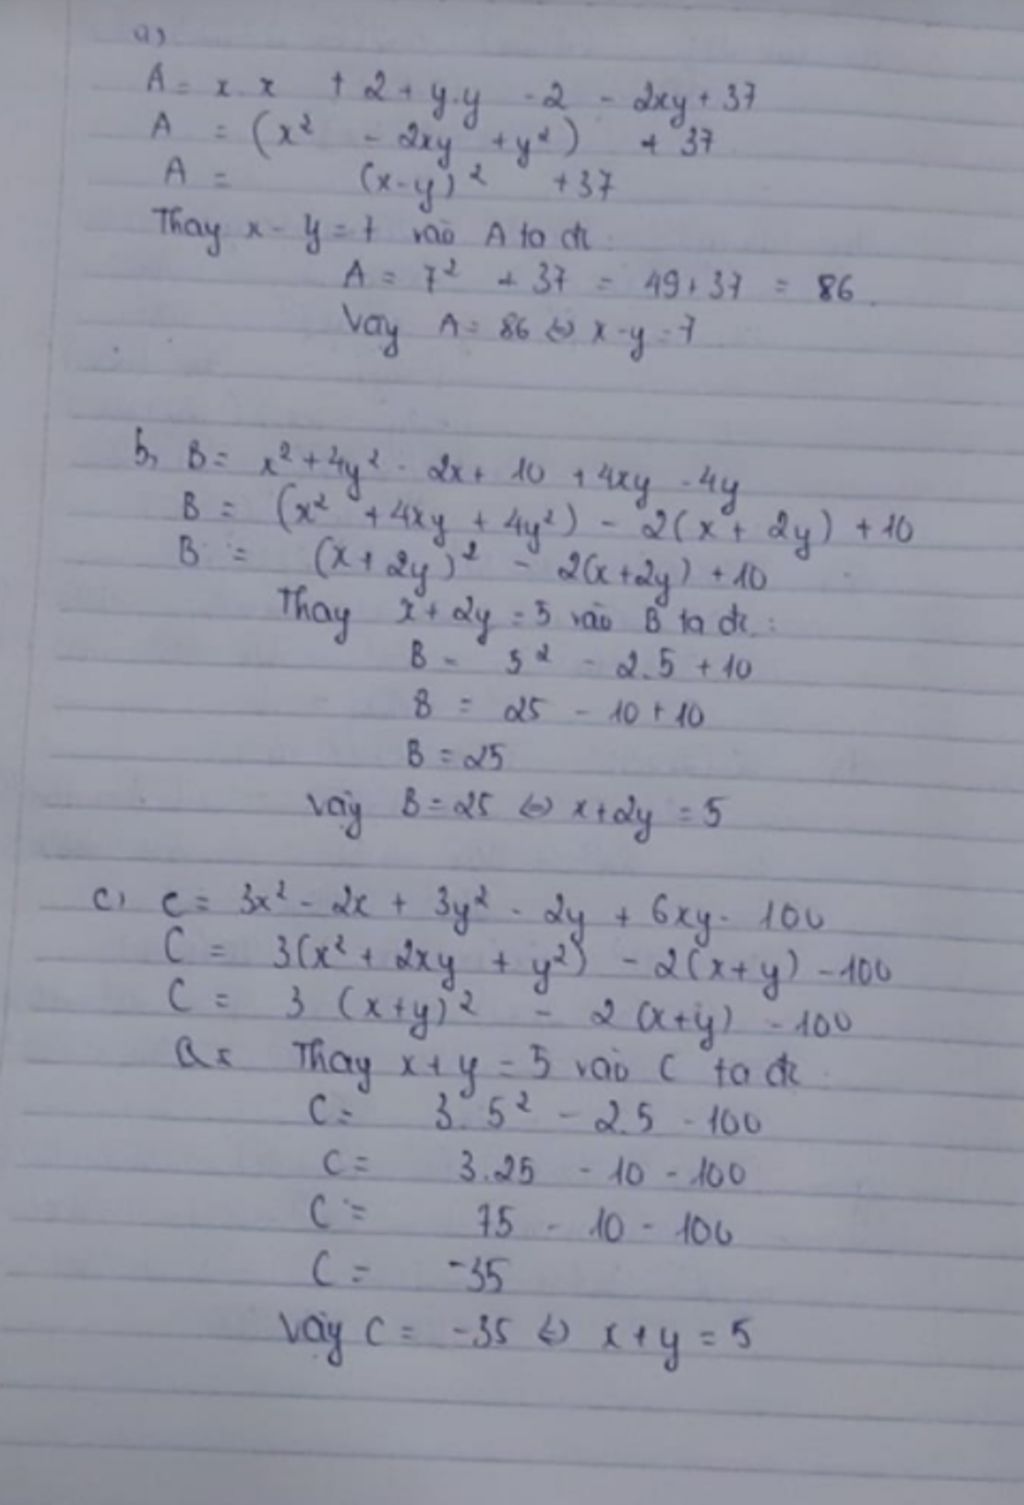 a)
A = x.x + 2 + y.y - 2 - 2xy + 37
A = (x² - 2xy + y²) + 37
A = (x-y)² + 37
Thay x - y = 7 vào A ta đc :
A = 7² + 37 = 49 + 37 = 86.
Vậy A = 86 <=> x - y = 7
b, B = x² + 4y² - 2x + 10 + 4xy - 4y
B = (x² + 4xy + 4y²) - 2(x + 2y) + 10
B = (x + 2y)² - 2(x+2y) + 10
Thay x + 2y = 5 vào B ta đc :
B = 5² - 2.5 + 10
B = 25 - 10 + 10
B = 25
Vậy B = 25 <=> x + 2y = 5
c, C = 3x² - 2x + 3y² - 2y + 6xy - 100
C = 3(x² + 2xy + y²) - 2(x+y) - 100
C = 3 (x+y)² - 2 (x+y) - 100
Thay x + y = 5 vào C ta đc
C = 3.5² - 2.5 - 100
C = 3.25 - 10 - 100
C = 75 - 10 - 100
C = -35
Vậy C = -35 <=> x + y = 5